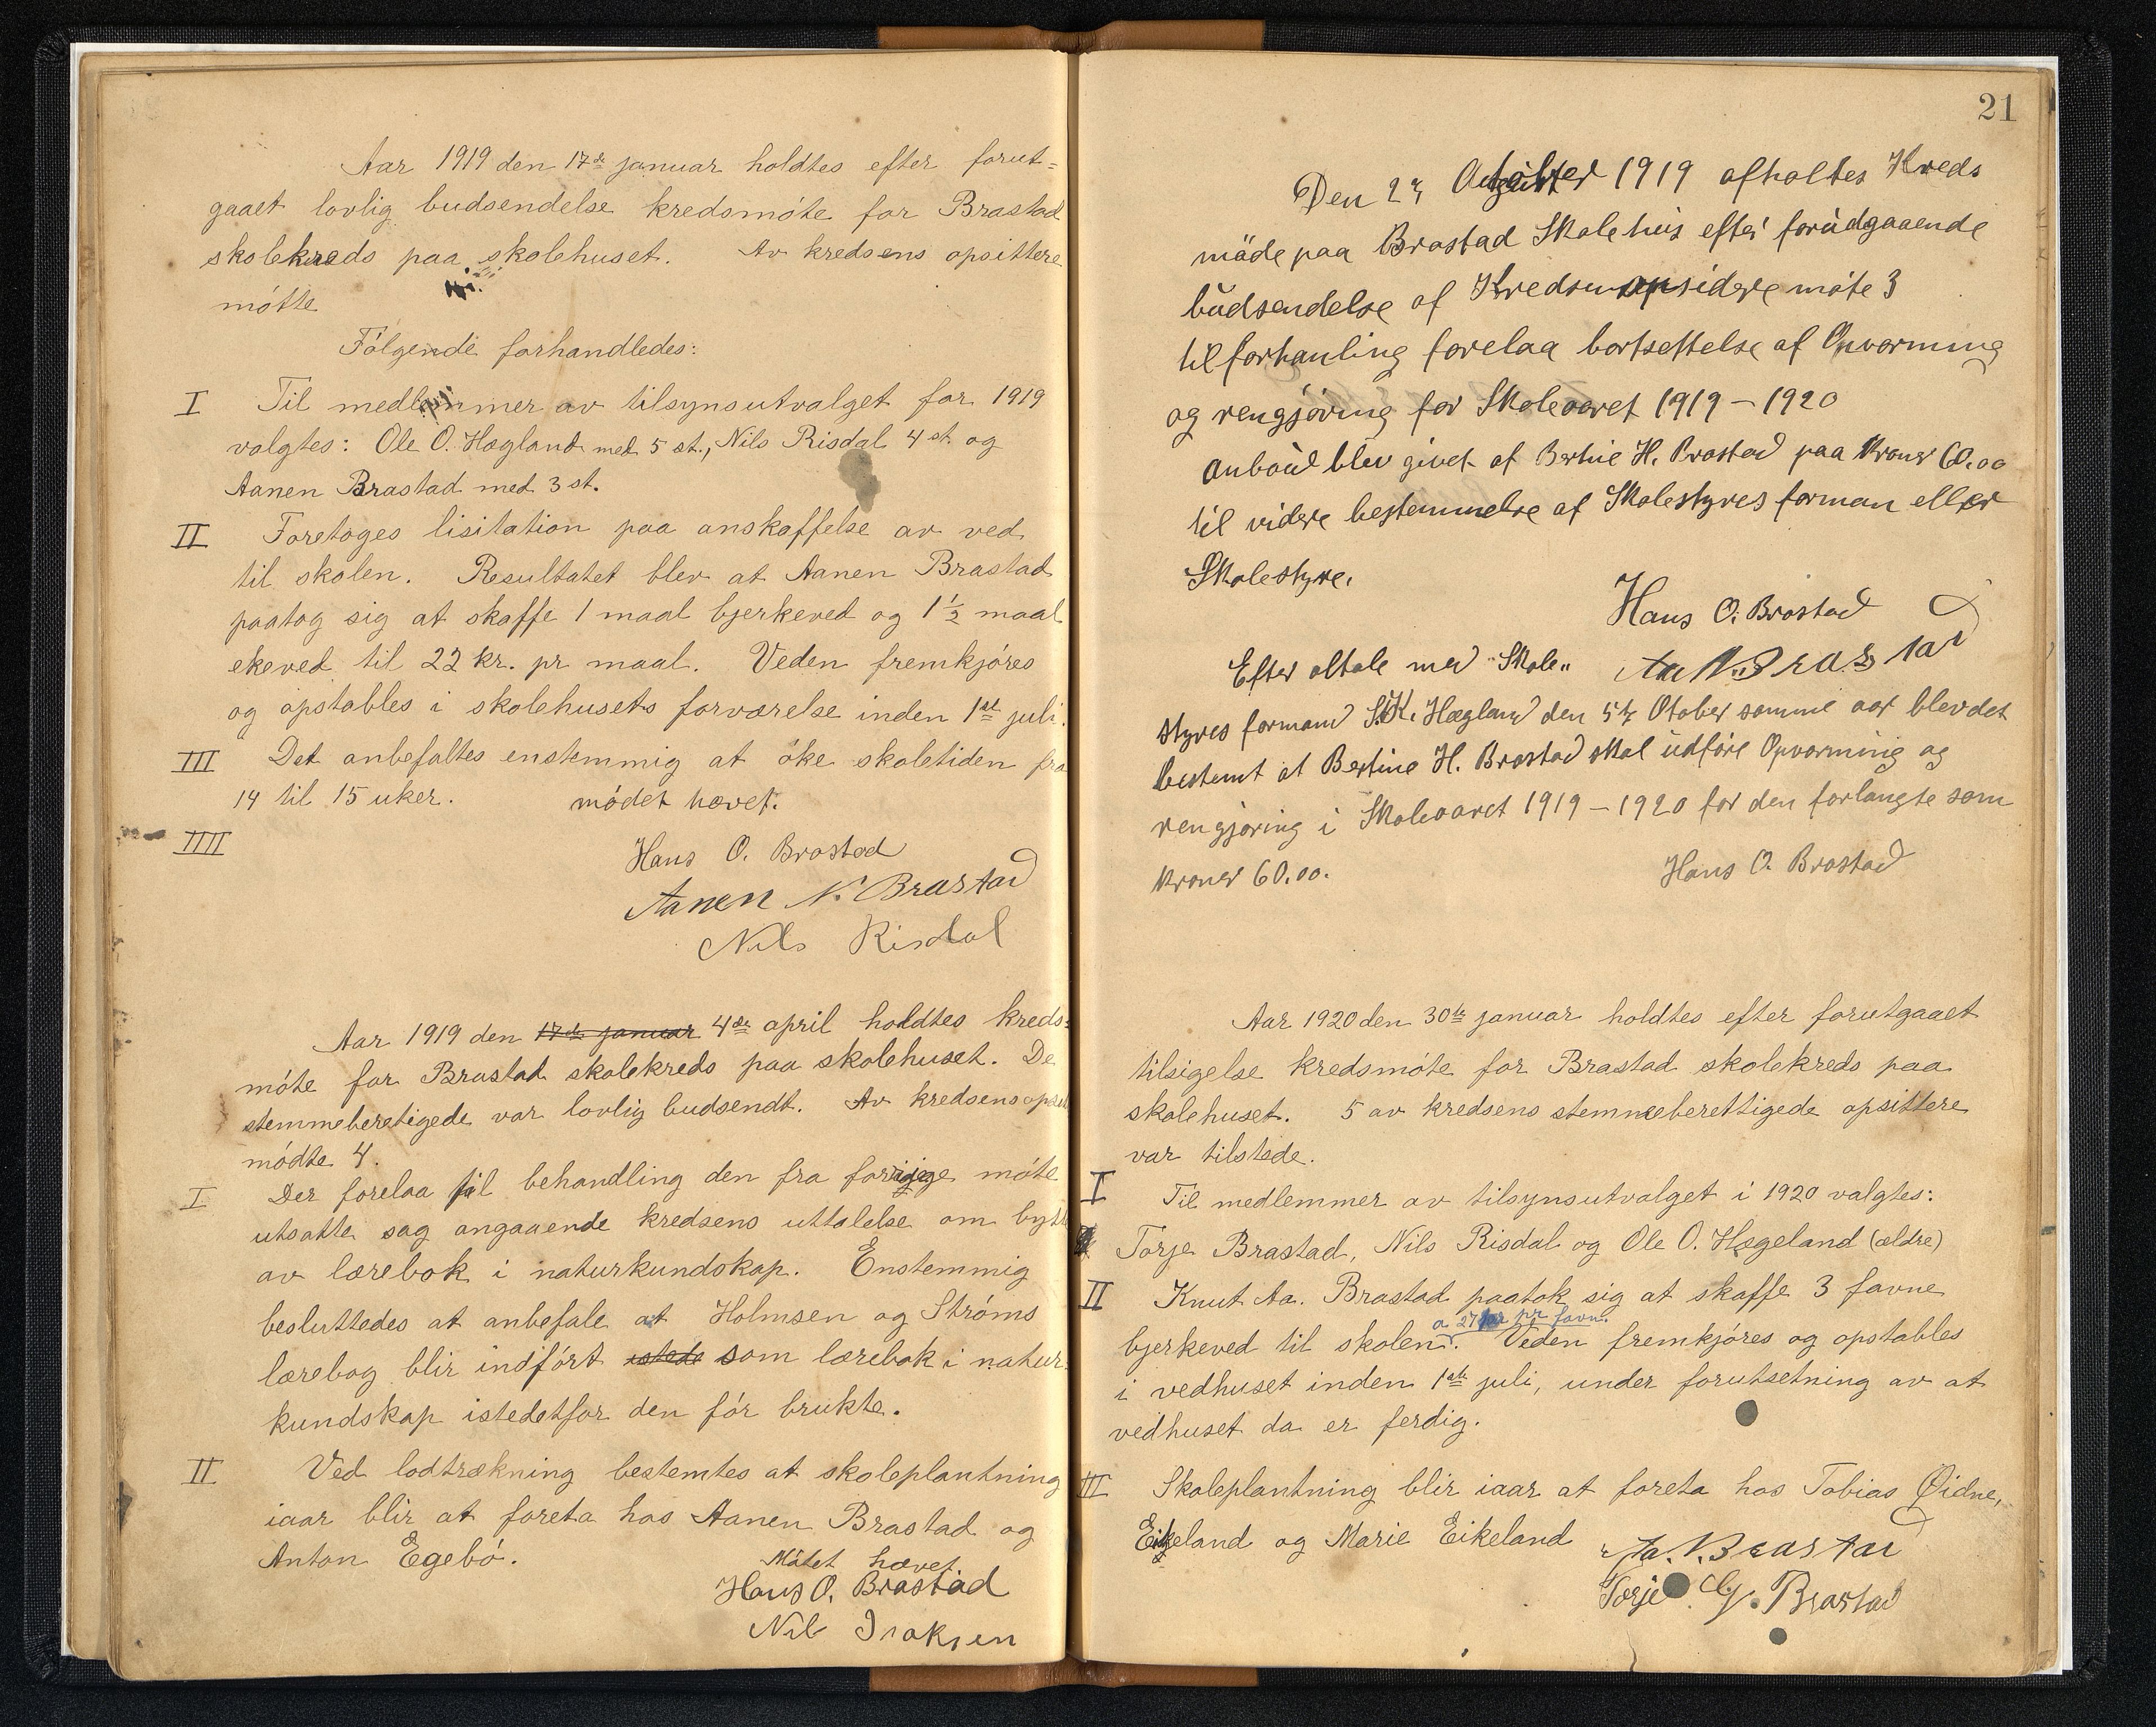 Aar 1919 den 17de januar holdtes efter forut=
gaaet lovlig budsendelse kredsmöte for Brastad
skolekreds paa skolehuset. Av kredsens opsittere
mötte
Fölgende forhandledes:
I Til medlemmer av tilsynsutvalget for 1919
valgtes: Ole O. Hægland med 5 st., Nils Risdal 4 st. og
Aanen Brastad med 3 st.
II Foretoges lisitation paa anskaffelse av ved
til skolen. Resultatet blev at Aanen Brastad
paatog sig at skaffe 1 maal bjerkeved og 1 1/2 maal
ekeved til 22 kr. pr maal. Veden fremkjöres
og opstables i skolehusets forværelse inden 1ste juli.
III Det anbefaltes enstemmig at öke skoletiden fra
14 til 15 uker. mödet hævet.
IIII
Hans O. Brastad
Aanen N. Brastad
Nils Risdal
Aar 1919 den 17de januar 4de april holdtes kreds=
möte for Brastad skolekreds paa skolehuset. De
stemmeberetigede var lovlig budsendt. Av kredsens
mödte 4.
I Der forelaa til behandling den fra forrige möte
utsatte sag angaaende kredsens uttalelse om bytte
av lærebok i naturkundskap. Enstemmig
besluttedes at anbefale at Holmsen og Ströms
lærebog blir indfört istede som lærebok i natur=
kundskap istedetfor den för brukte.
II Ved lodtrækning bestemtes at skoleplantning
iaar blir at foreta hos Aanen Brastad og
Anton Egebö.
Mötet hævet
Hans O. Brastad
Nils Isaksen
21
Den 2 1919 afholtes Kreds
möde paa Brastad Skolehus efter forudgaaende
budsendelse af Kredsens opsidere möte 3
til forhanling forelaa bortsettelse af Opvarming
og rengjöring for Skoleaaret 1919 – 1920
Anboud blev givet af Bertine H. Brastad paa Kroner 60.00
til videre bestemmelse af Skolestyres forman eller
Skolestyre.
Hans O. Brastad
Aa N. Brastad
Efter altale med Skole„
styres formand S.K. Hægland den 5te Otober samme aar blev det
bestemt at Bertine H. Brastad skal udföre Opvarming og
rengjöring i Skoleaaret 1919 – 1920 for den forlangte som
kroner 60.00.
Hans O. Brastad
Aar 1920 den 30te januar holdtes efter forutgaaet
tilsigelse kredsmöte for Brastad skolekreds paa
skolehuset. 5 av kredsens stemmeberettigede opsittere
var tilstede.
I Til medlemmer av tilsynsutvalget i 1920 valgtes:
Torje Brastad, Nils Risdal og Ole O. Hægeland (ældre)
II Knut Aa. Brastad paatok sig at skaffe 3 favne
a 27 kr pr favn.
bjerkeved til skolen. Veden fremkjöres og opstables
i vedhuset inden 1ste juli, under forutsetning av at
vedhuset da er ferdig.
III Skoleplantning blir iaar at foreta hos Tobias Øidne,
Eikeland og Marie Eikeland
Aa. N. Brastad
Torje G. Brastad